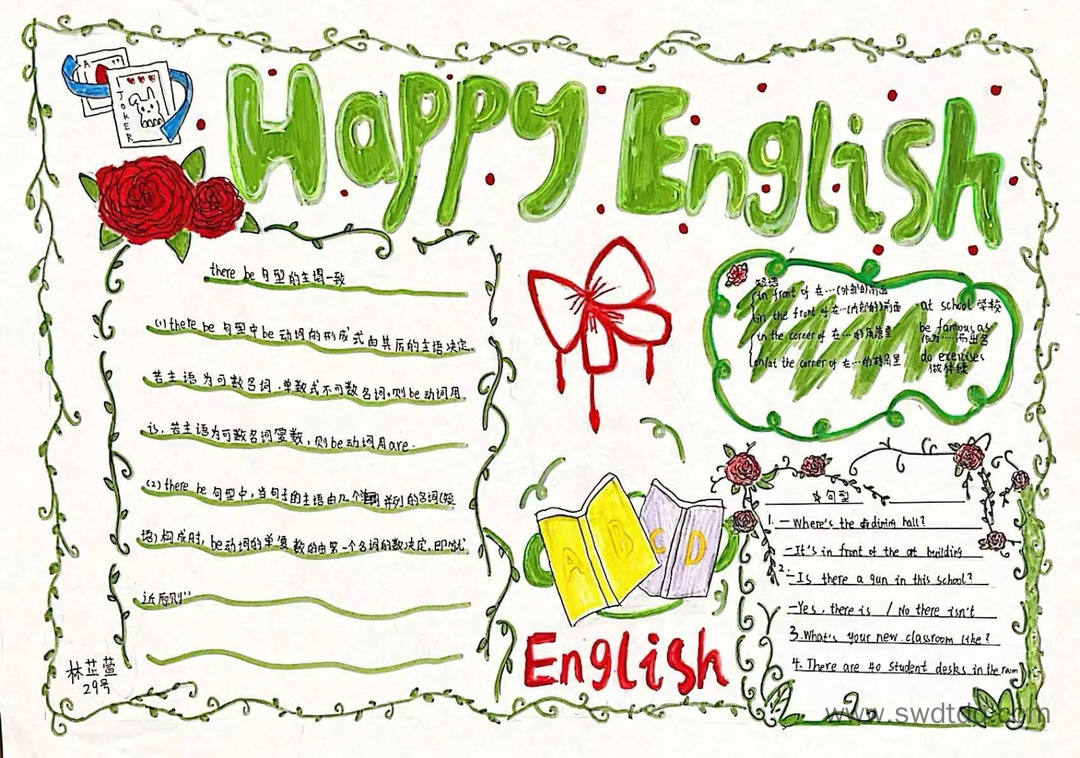 Happy English
A
JOKER
there be 句型的主谓一致
(1) there be 句型中 be 动词的形成式由其后的主语决定。
若主语为可数名词,单数式不可数名词,则 be 动词用
is. 若主语为可数名词复数,则 be 动词用 are.
(2) there be 句型中,当句子的主语由几个并列的名词(短
语)构成时, be动词的单复数由第一个名词的数决定,即"就
近原则"
林芷萱
29号
短语
in front of 在…(外部的)前面
in the front of 在…(内部的)前面
in the corner of 在…的角落里
on/at the corner of 在…的拐角里
at school 学校
be famous as
作为…而出名
do exercises
做体操
A B C D
English
句型
1. — Where's the dining hall?
- It's in front of the art building
2. - Is there a gun in this school?
- Yes, there is / No there isn't
3. What's your new classroom like?
4. There are 40 student desks in the room
www.swdtdq.com